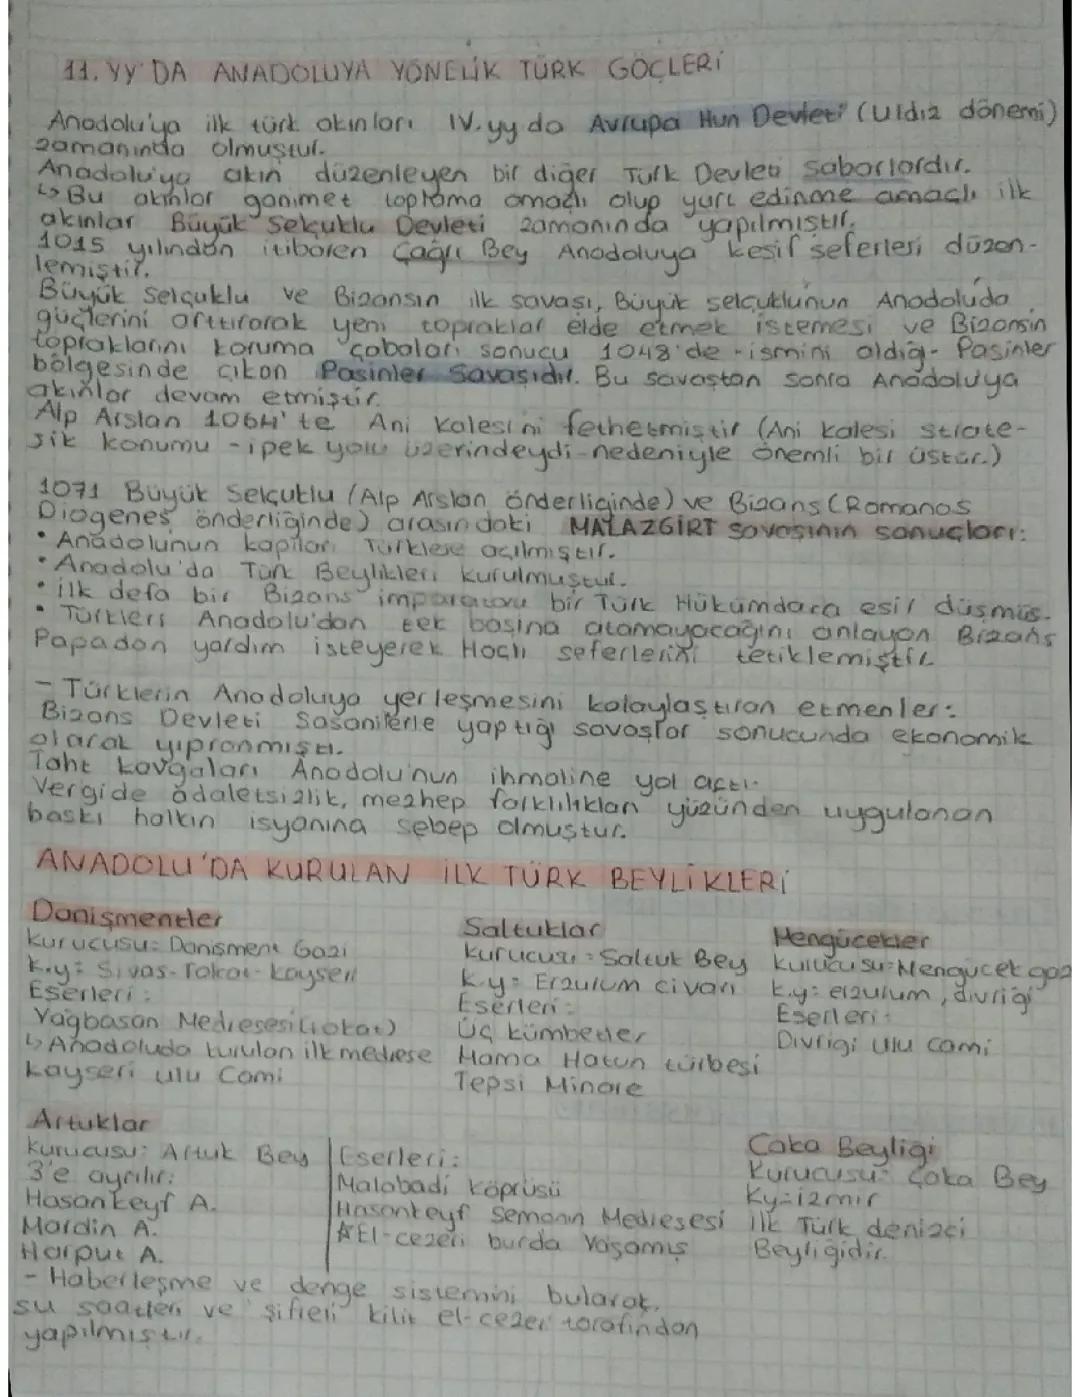 11. YY'DA ANADOLUYA YÖNELİK TÜRK GÖÇLERİ
Anadolu'ya ilk türk akınları IV. yy da Avrupa Hun Devleti (Uldız dönemi)
zamanında olmuştur.
Anadolu'ya akın düzenleyen bir diğer Türk Devleti Sabarlardır.
↳ Bu akınlar ganimet toplama amaçlı olup yurt edinme amaçlı ilk
akınlar Büyük Selçuklu Devleti zamanında yapılmıştır.
1015 yılından itibaren Çağrı Bey Anadoluya keşif seferleri düzen-
lemiştir.
Büyük Selçuklu ve Bizansın ilk savaşı, Büyük selçuklunun Anadoluda
güçlerini arttırarak yeni topraklar elde etmek istemesi ve Bizansın
topraklarını koruma çabaları sonucu 1048'de -ismini aldığı- Pasinler
bölgesinde çıkan Pasinler Savaşıdır. Bu savaştan sonra Anadolu'ya
akınlar devam etmiştir.
Alp Arslan 1064'te Ani Kalesini fethetmiştir (Ani kalesi strate-
jik konumu -ipek yolu üzerindeydi- nedeniyle önemli bir üstür.)
1071 Büyük Selçuklu (Alp Arslan önderliğinde) ve Bizans (Romanos
Diogenes önderliğinde) arasındaki MALAZGİRT savaşının sonuçları:
• Anadolunun kapıları Türklere açılmıştır.
• Anadolu'da Türk Beylikleri kurulmuştur.
• ilk defa bir Bizans imparatoru bir Türk Hükümdara esir düşmüş.
• Türkleri Anadolu'dan tek başına atamayacağını anlayan Bizans
Papadan yardım isteyerek Haçlı seferlerini tetiklemiştir.
- Türklerin Anadoluya yerleşmesini kolaylaştıran etmenler:
Bizans Devleti Sasanilerle yaptığı savaşlar sonucunda ekonomik
olarak yıpranmıştı.
Taht kavgaları Anadolu'nun ihmaline yol açtı.
Vergide adaletsizlik, mezhep farklılıkları yüzünden uygulanan
baskı halkın isyanına sebep olmuştur.
ANADOLU'DA KURULAN İLK TÜRK BEYLİKLERİ
Danişmentler
Kurucusu: Danişment Gazi
K.y: Sivas-Tokat-Kayseri
Eserleri:
Yağbasan Medresesi (tokat)
↳ Anadoluda kurulan ilk medrese
Kayseri ulu Cami
Saltuklar
Kurucusu: Saltuk Bey
K.y: Erzurum civarı
Eserleri:
Üç kümbetler
Mama Hatun türbesi
Tepsi Minare
Mengücekler
Kurucusu: Mengücek gazi
K.y: erzurum, divriği
Eserleri:
Divriği Ulu cami
Artuklar
Kurucusu: Artuk Bey
3'e ayrılır:
Hasankeyf A.
Mardin A.
Harput A.
Eserleri:
Malabadi köprüsü
Hasankeyf Semanin Medresesi
* El-cezeri burda Yaşamış
- Haberleşme ve denge sistemini bularak,
su saatleri ve şifreli kilit el-cezeri tarafından
yapılmıştır.
Çaka Beyliği
Kurucusu: Çaka Bey
Ky: izmir
İlk Türk denizci
Beyliğidir.